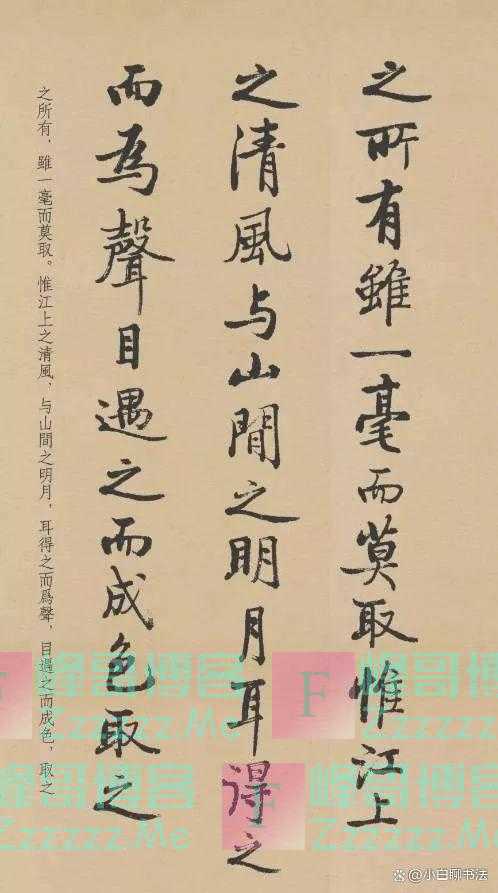 之所有雖一毫而莫取惟江上
之清風与山間之明月耳得之
而為聲目遇之而成色取之
之所有，雖一毫而莫取。惟江上之清風，与山間之明月，耳得之而爲聲，目遇之而成色，取之
峰哥博客
Zzzzzz.Me
F
峰哥博客
Zzzzzz.Me
F
峰哥博客
Zzzzzz.Me
峰哥博客
Zzzzzz.Me
F
@小白聊书法